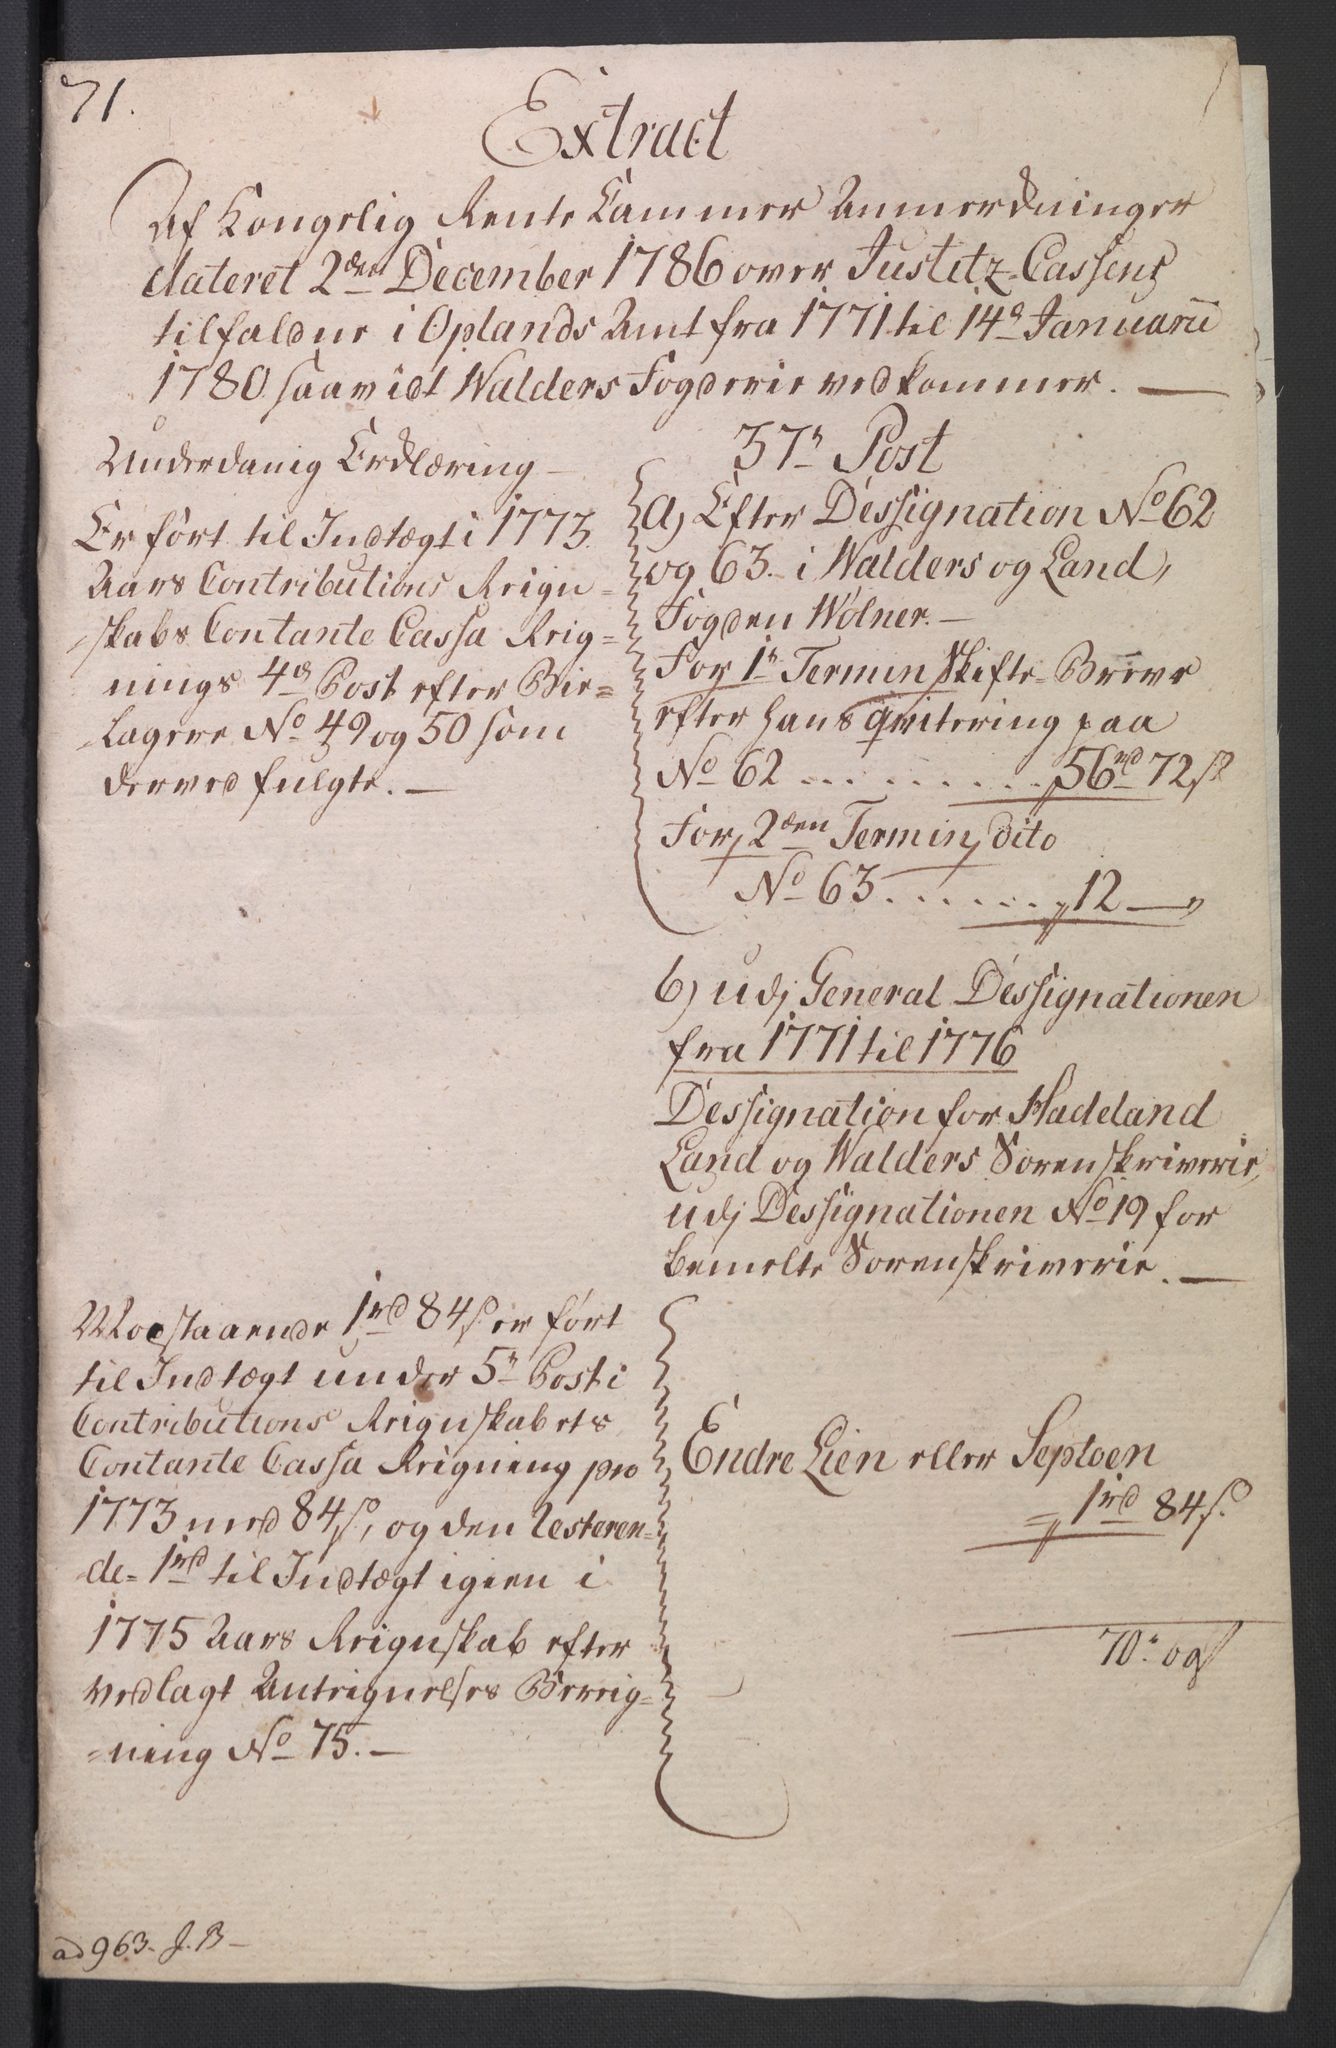 71.
Extract
Af Kongelig Rente Cammer Anmerdninger
dateret 2den December 1786 over Justitz-Cassens
tilfaldne i Oplands Amt fra 1771 til 14de Januarii
1780 saavidt Walders Fogderie vedkommer. —
Underdanig Erklæring —
Er ført til Indtægt i 1773
Aars Contributions Reign-
-skabs Contante Cassa Reig-
nings 4de Post efter Bie-
-lagere No 49 og 50 som
derved fulgte. —
37te Post
a) Efter Dessignation No 62
og 63. i Walders og Land,
Fogden Wölner. —
For 1te Termin Skifte-Breve
efter hans qvitering paa
No 62 . . . . . . . . . 56rd 72s
For 2den Termin dito
No 63 . . . . . . . 12 — "
b) udj General Dessignationen
fra 1771 til 1776
Dessignation for Hadeland
Land og Walders Sorenskriverie,
udj Dessignationen No 19 for
bemelte Sorenskriverie. —
Modstaaende 1rd 84s er ført
til Indtægt under 5te Post i
Contributions Reignskabets
Contante Cassa Reigning pro
1773 med 84s, og den resteren-
de- 1rd til Indtægt igien i
1775 Aars Reignskab efter
vedlagt Antegnelses Bereig-
-ning No 75. —
Endre Lien eller Septoen
1rd 84s.
70: og
ad 963. J. B —